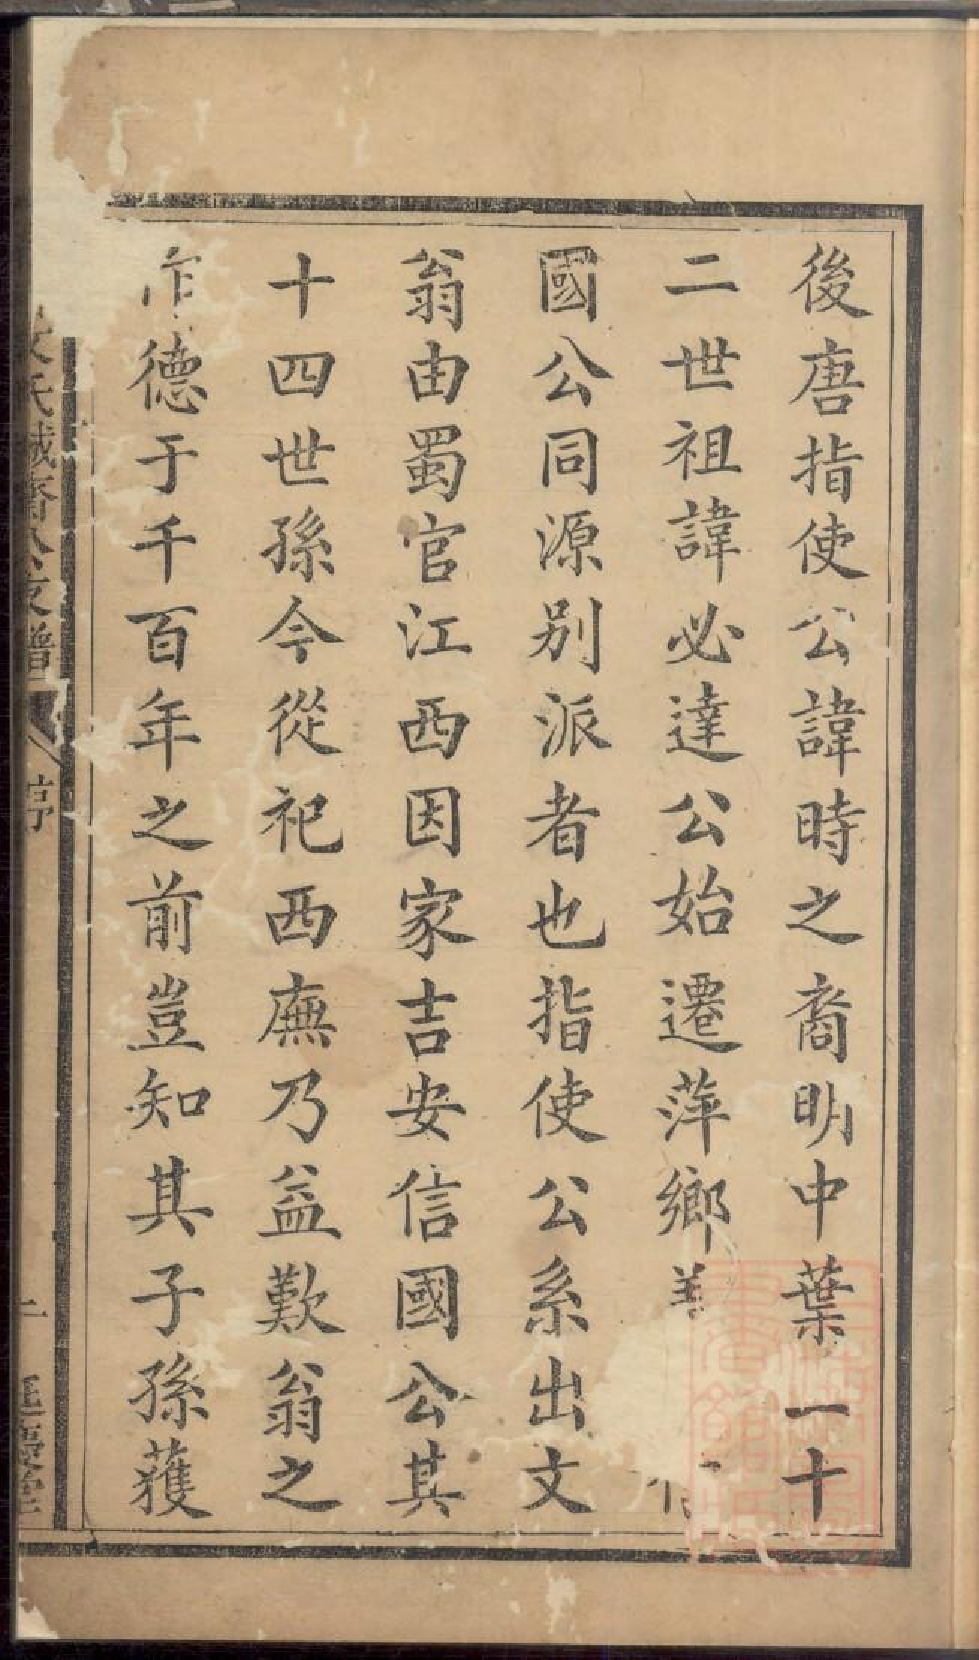 後唐指使公諱時之裔明中葉一十
二世祖諱必達公始遷萍鄉
國公同源別派者也指使公系出文
翁由蜀官江西因家吉安信國公其
十四世孫今從祀西廡乃益歎翁之
作德于千百年之前豈知其子孫獲
文氏誠齋公支譜
序
二